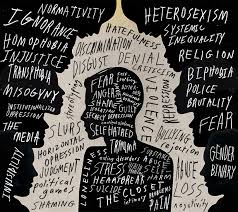 IGNORANCE
NORMATIVITY
HOMOPHOBIA
INJUSTICE
TRANSPHOBIA
MISOGYNY
INSTITUTIONALIZED
OPPRESSION
THE
MEDIA
INVISIBILITY
HATEFULNESS
DISCRIMINATION
DISGUST
DENIAL
CRITICISM
HETEROSEXISM
SYSTEMIC
INEQUALITY
RELIGION
BIPHOBIA
POLICE
BRUTALITY
FEAR
GENDER
BINARY
VIOLENCE
REPRESSION
BULLYING
REJECTION
SLURS
HORIZONTAL
OPPRESSION
JUDGMENT
political
games
SHAMING
FEAR
ANGER
SHAME
GUILT
SECRECY
SELF HATRED
TRAUMA
LONELINESS
STRESS
SELF HARM
HEARTBREAK
SUICIDE
THE CLOSET
PAIN
HATE
LOSS
negativity